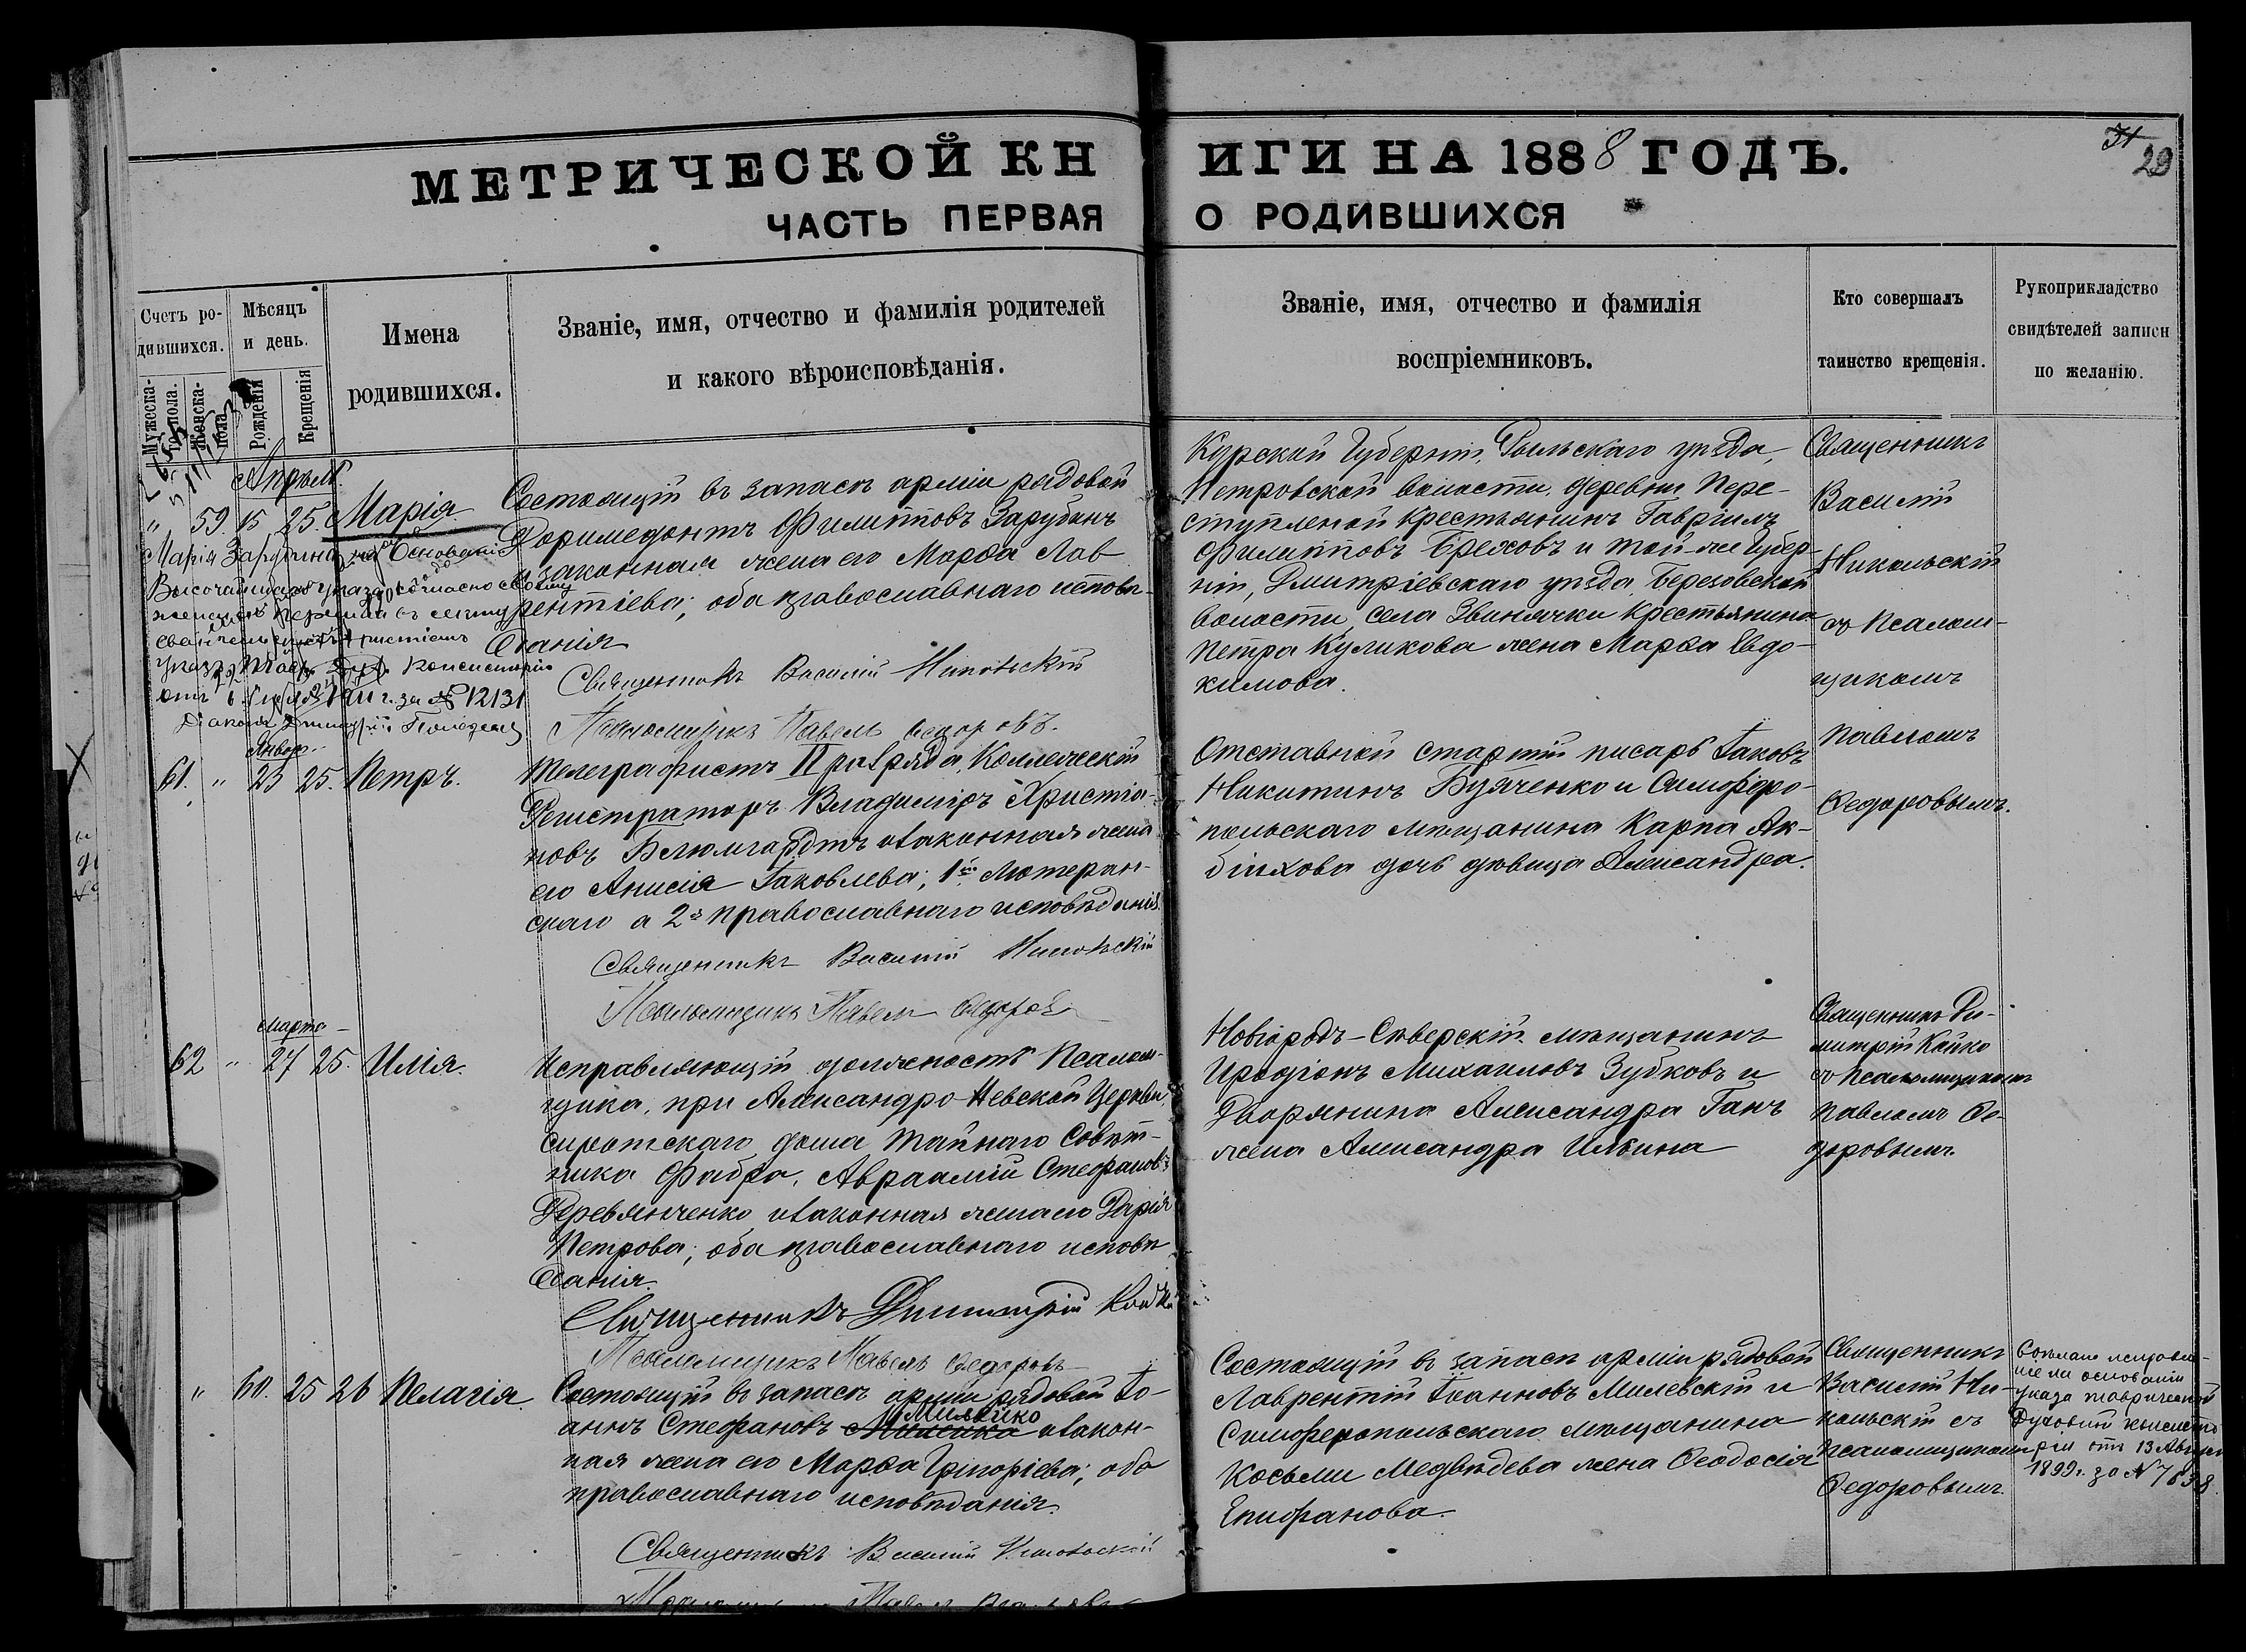 МЕТРИЧЕСКОЙ КНИГИ НА 1888 ГОДЪ.
31
29
ЧАСТЬ ПЕРВАЯ О РОДИВШИХСЯ
Счетъ ро-
дившихся.
Мужеска-
го пола.
Женска-
пола
Мѣсяцъ
и день.
Рожденія
Крещенія
Имена
родившихся.
Званіе, имя, отчество и фамилія родителей
и какого вѣроисповѣданія.
Званіе, имя, отчество и фамилія
воспріемниковъ.
Кто совершалъ
таинство крещенія.
Рукоприкладство
свидѣтелей записи
по желанію.
Апрѣль.
" 59. 15 25. Марія.
Марія Зарубина на основаніи
Высочайшаго указа согласно
указъ Тавр. Дух. Консисторіи
1911 г. за № 12131
Діаконъ Димитрій
Состоящій въ запасѣ арміи рядовой
Доримедонтъ Филипповъ Зарубинъ
и законная жена его Марѳа Лав-
рентіева; оба православнаго исповѣ-
данія
Священникъ Василій Никольскій
Псаломщикъ Павелъ Ѳедоровъ.
Курской Губерніи, Рыльскаго уѣзда,
Петровской волости, деревни Пере-
ступленой крестьянинъ Гавріилъ
Филипповъ Брехов и той-же Губер-
ніи, Дмитріевскаго уѣзда, Березовской
волости, села Звинячки крестьянина
Петра Куликова жена Марѳа Евдо-
кимова.
Священникъ
Василій
Никольскій
съ Псалом-
щикомъ
Павломъ
Ѳедоровымъ.
Январ.
61. " 23 25. Петръ.
Телеграфистъ II разряда, Коллежскій
Регистраторъ Владиміръ Христіа-
новъ и законная жена
его Анисія Іаковлева; 1й Лютеран-
скаго а 2я православнаго исповѣданія.
Священникъ Василій Никольскій
Псаломщикъ Павелъ Ѳедоровъ
Отставной старшій писарь Іаковъ
Никитинъ Бутченко и Симферо-
польскаго мѣщанина Карпа Ак-
бинхова дочь дѣвица Александра.
Марта
62 " 27 25. Илія.
Исправляющій должность Псалом-
щика, при Александро-Невской Церкви
Сиротскаго дома Тайнаго Совѣт-
ника Фабра, Авраамій Стефановъ
Деревянченко и законная жена его Дарія
Петрова; оба православнаго исповѣ-
данія.
Священникъ Димитрій Койко
Псаломщикъ Павелъ Ѳедоровъ
Новгородъ-Сѣверскій мѣщанинъ
Иродіонъ Михаиловъ Зубковъ и
Дворянина Александра Ганъ
жена Александра Ильина
Священникъ Ди-
митрій Койко
съ Псаломщикомъ
Павломъ Ѳе-
доровымъ.
" 60. 25 26 Пелагія.
Состоящій въ запасѣ арміи рядовой Іо-
аннъ Стефановъ Милейко и закон-
ная жена его Марѳа Григоріева; оба
православнаго исповѣданія.
Священникъ Василій Никольскій
Псаломщикъ Павелъ Ѳедоровъ
Состоящій въ запасѣ арміи рядовой
Лаврентій Іоанновъ Милевскій и
Симферопольскаго мѣщанина
Косьмы Медвѣдева жена Ѳеодосія
Епифанова.
Священникъ
Василій Ни-
кольскій съ
Псаломщикомъ
Ѳедоровымъ.
на основаніи
указа Таврической
Духовной Консисто-
ріи отъ 13 Августа
1899 г. за № 7838